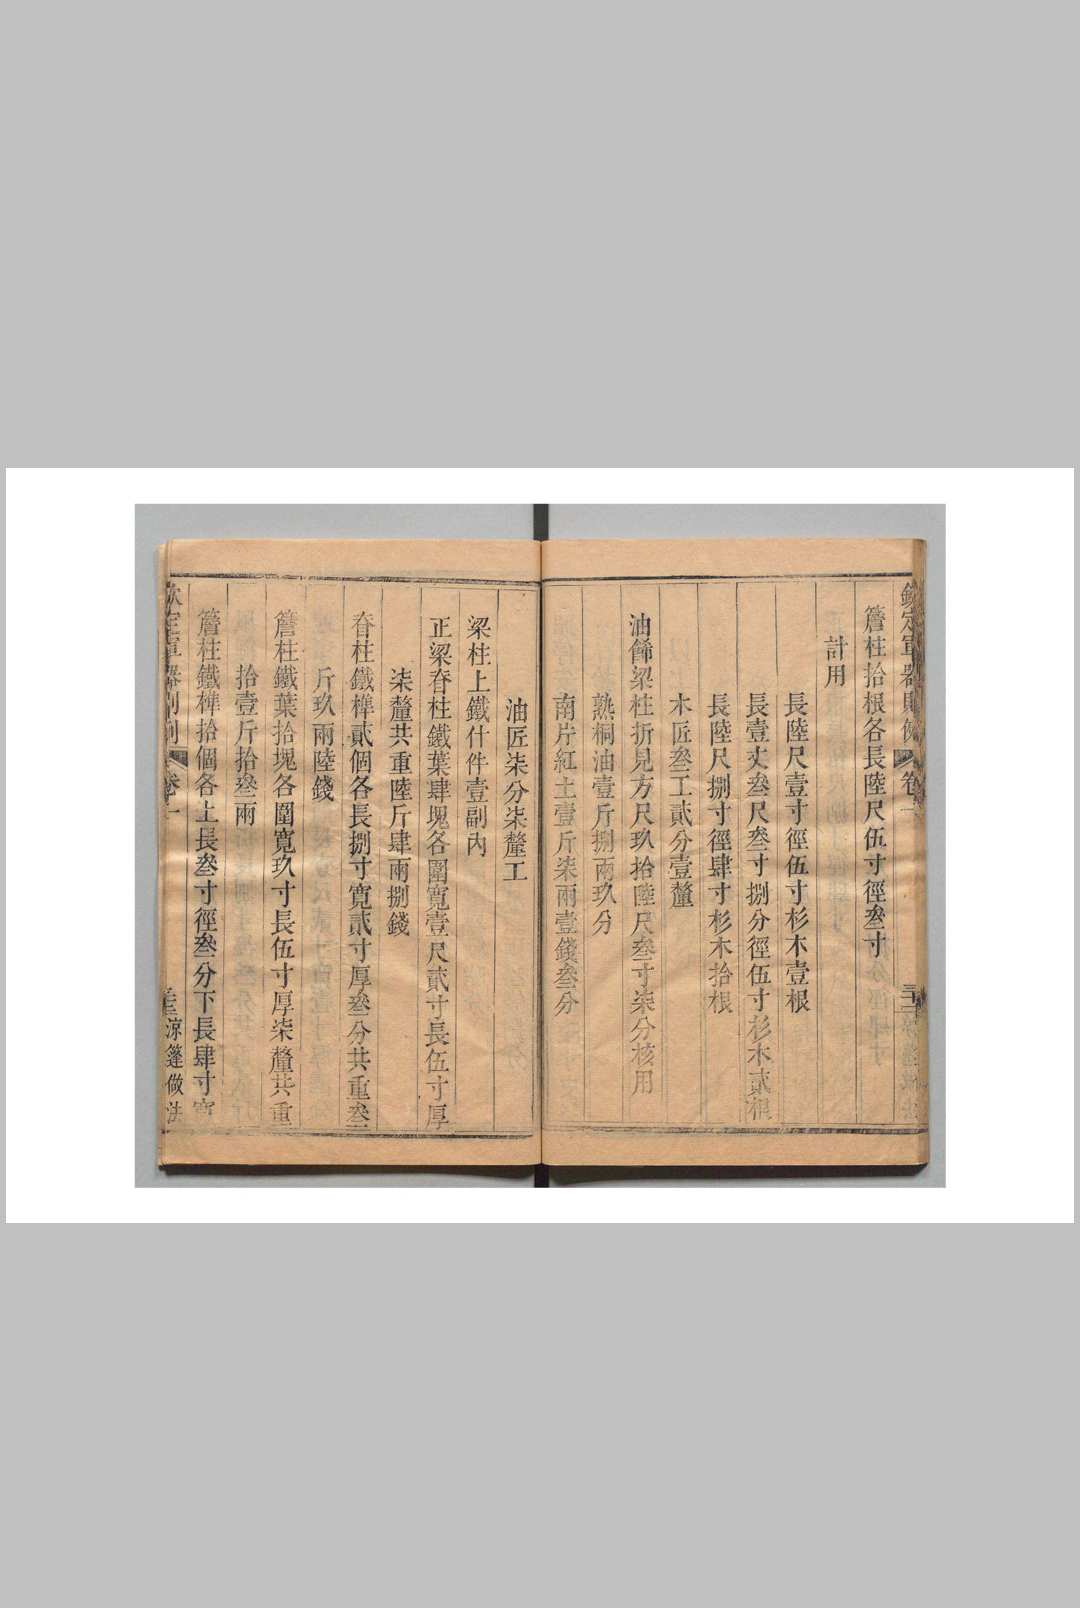 簷柱拾根各長陸尺伍寸徑叁寸
計用
長陸尺壹寸徑伍寸杉木壹根
長壹丈叁尺叁寸捌分徑伍寸杉木貳根
長陸尺捌寸徑肆寸杉木拾根
木匠叁工貳分壹釐
油餙梁柱折見方尺玖拾陸尺叁寸柒分核用
熟桐油壹斤捌兩玖分
南片紅土壹斤柒兩壹錢叁分
油匠柒分柒釐工
梁柱上鐵什件壹副內
正梁脊柱鐵葉肆塊各圍寬壹尺貳寸長伍寸厚
柒釐共重陸斤肆兩捌錢
脊柱鐵榫貳個各長捌寸寬貳寸厚叁分共重叁
斤玖兩陸錢
簷柱鐵葉拾塊各圍寬玖寸長伍寸厚柒釐共重
拾壹斤拾叁兩
簷柱鐵榫拾個各上長叁寸徑叁分下長肆寸寬
欽定軍器則例 卷一 涼篷做法